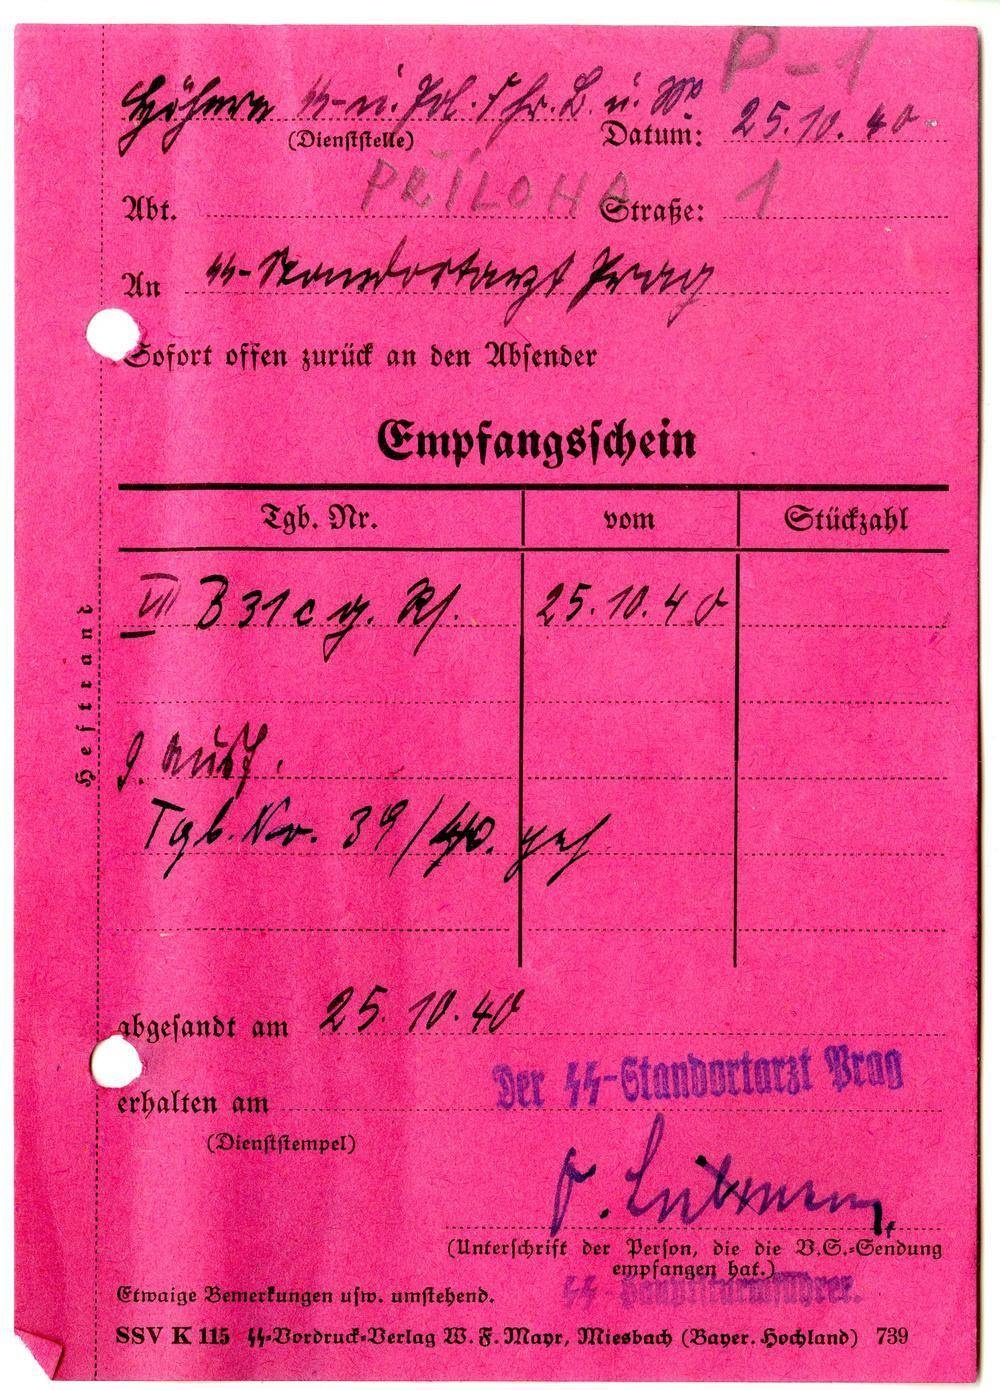 P-1
Höhere ᛋᛋ-u. Pol. Fhr. B. u. M.
(Dienststelle) Datum: 25.10.40
PŘÍLOHA 1
Abt. Straße:
An ᛋᛋ-Standortarzt Prag
Sofort offen zurück an den Absender
Empfangsschein
Tgb. Nr. vom Stückzahl
VIII B 31 c g. Rs. 25.10.40
Heftrand
Tgb. Nr. 39/40. geh
abgesandt am 25.10.40
Der ᛋᛋ-Standortarzt Prag
erhalten am
(Dienststempel)
(Unterschrift der Person, die die V.S.-Sendung
empfangen hat.)
ᛋᛋ-Hauptsturmführer.
Etwaige Bemerkungen usw. umstehend.
SSV K 115 ᛋᛋ-Vordruck-Verlag W. F. Mayr, Miesbach (Bayer. Hochland) 739